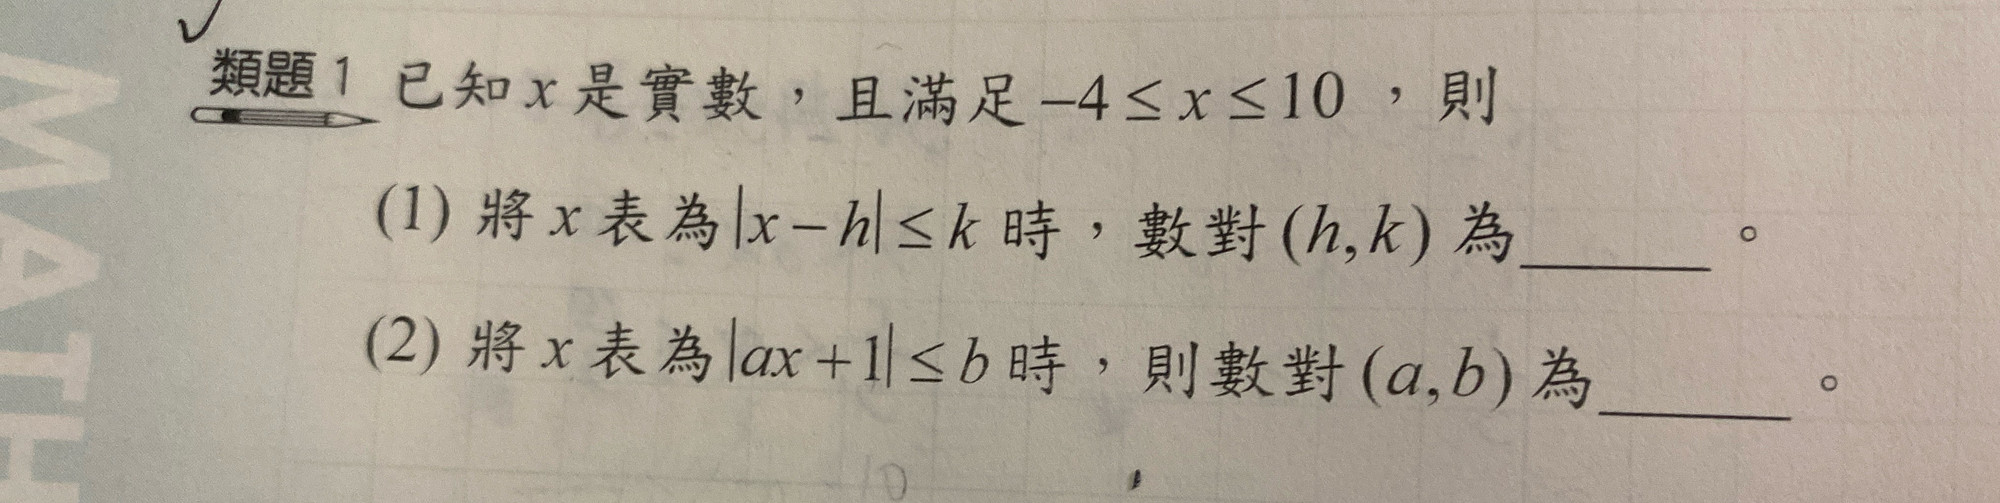 MATH
類題1 已知 x 是實數，且滿足 −4 ≤ x ≤ 10，則
(1) 將 x 表為 |x − h| ≤ k 時，數對 (h, k) 為______。
(2) 將 x 表為 |ax + 1| ≤ b 時，則數對 (a, b) 為______。